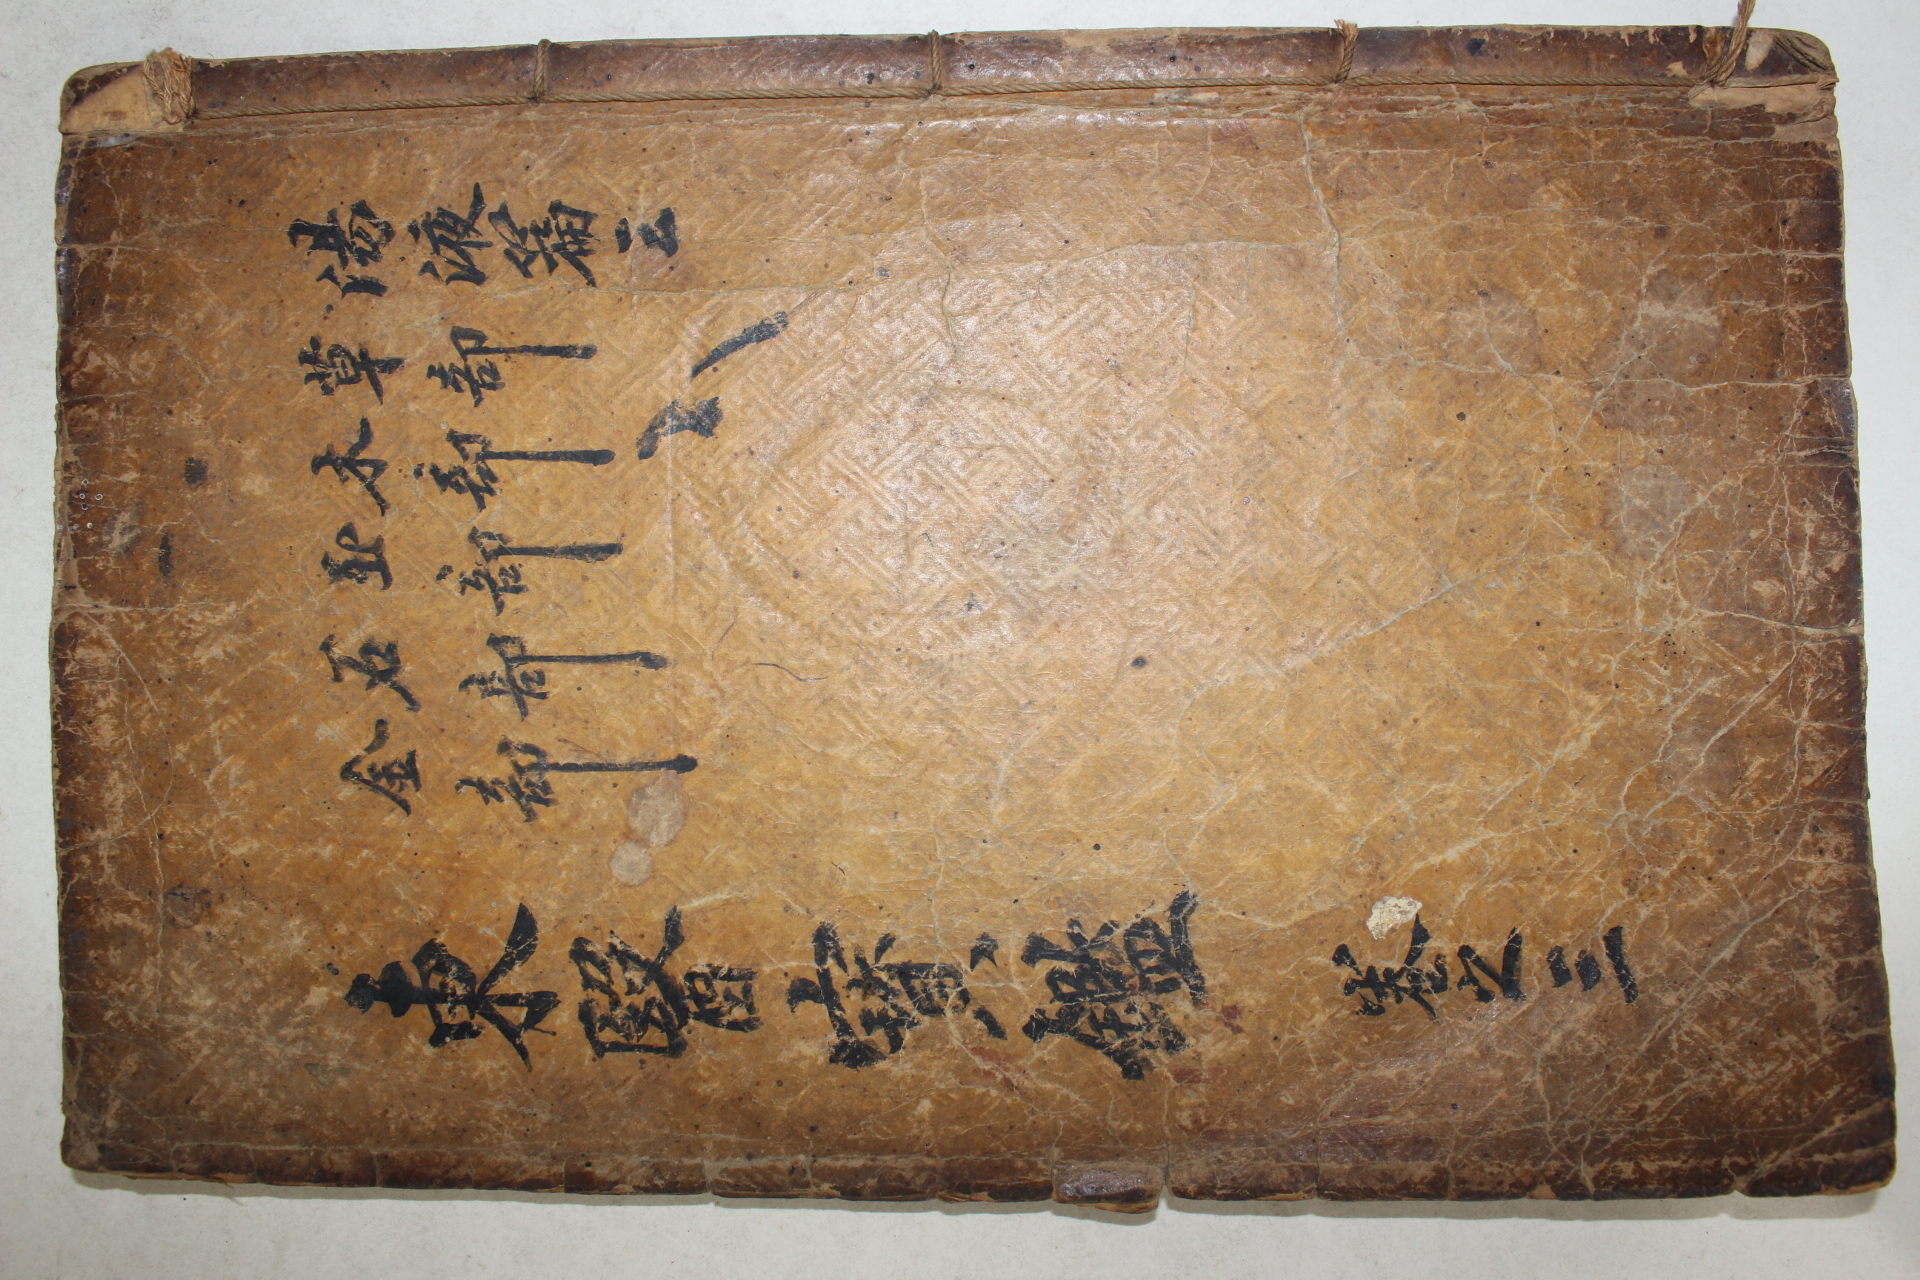 東醫寶鑑 卷之三
湯液篇三
草部
木部
玉部
石部
金部